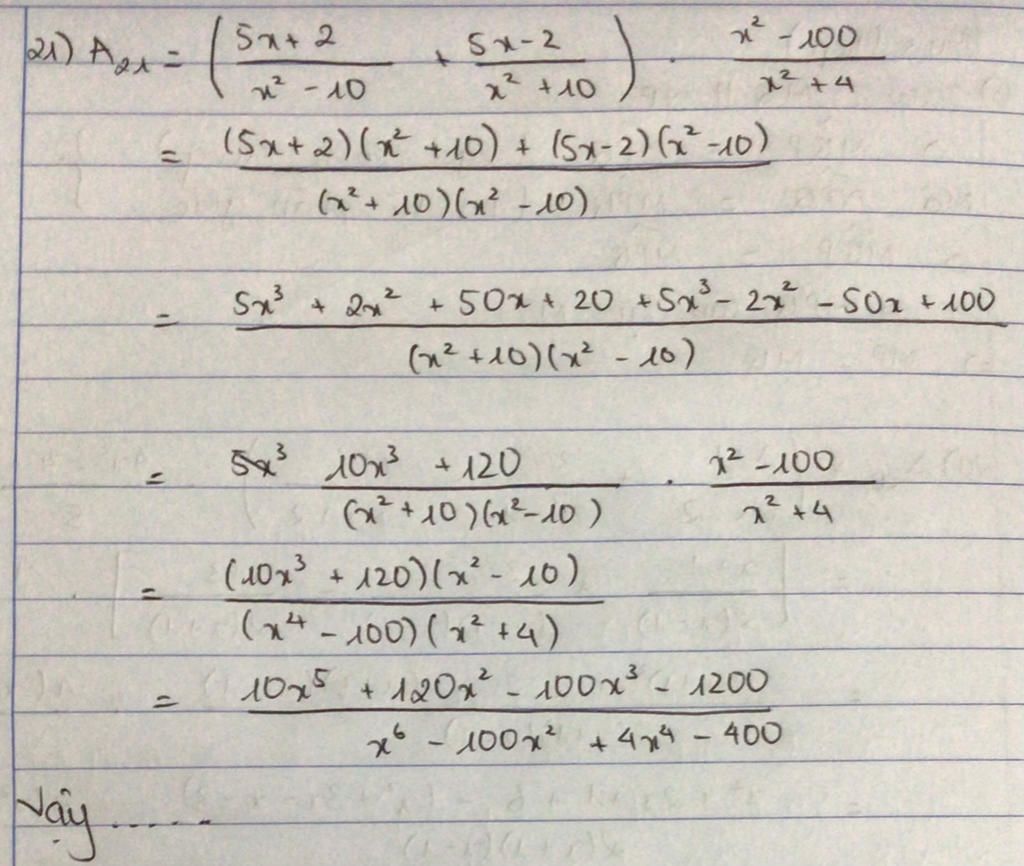 21) A₂₁ = ( (5x + 2)/(x² - 10) + (5x - 2)/(x² + 10) ) . (x² - 100)/(x² + 4)
= ((5x + 2)(x² + 10) + (5x - 2)(x² - 10))/((x² + 10)(x² - 10))
= (5x³ + 2x² + 50x + 20 + 5x³ - 2x² - 50x + 100)/((x² + 10)(x² - 10))
= 5x³ (10x³ + 120)/((x² + 10)(x² - 10)) . (x² - 100)/(x² + 4)
= ((10x³ + 120)(x² - 10))/((x⁴ - 100)(x² + 4))
= (10x⁵ + 120x² - 100x³ - 1200)/(x⁶ - 100x² + 4x⁴ - 400)
Vậy ......